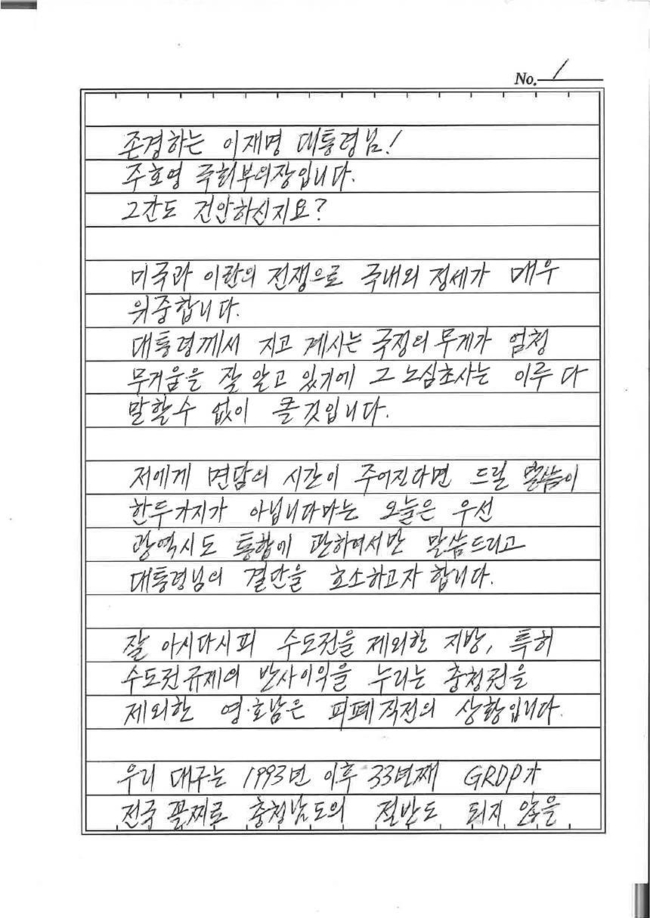 No. 1
존경하는 이재명 대통령님!
주호영 국회부의장입니다.
그간도 건안하신지요?
미국과 이란의 전쟁으로 국내외 정세가 매우
위중합니다.
대통령께서 지고 계시는 국정의 무게가 엄청
무거움을 잘 알고 있기에 그 노심초사는 이루 다
말할수 없이 클것입니다.
저에게 면담의 시간이 주어진다면 드릴 말씀이
한두가지가 아닙니다마는 오늘은 우선
광역시도 통합에 관하여서만 말씀드리고
대통령님의 결단을 호소하고자 합니다.
잘 아시다시피 수도권을 제외한 지방, 특히
수도권규제의 반사이익을 누리는 충청권을
제외한 영·호남은 피폐직전의 상황입니다.
우리 대구는 1993년 이후 33년째 GRDP가
전국 꼴찌로 충청남도의 절반도 되지 않을